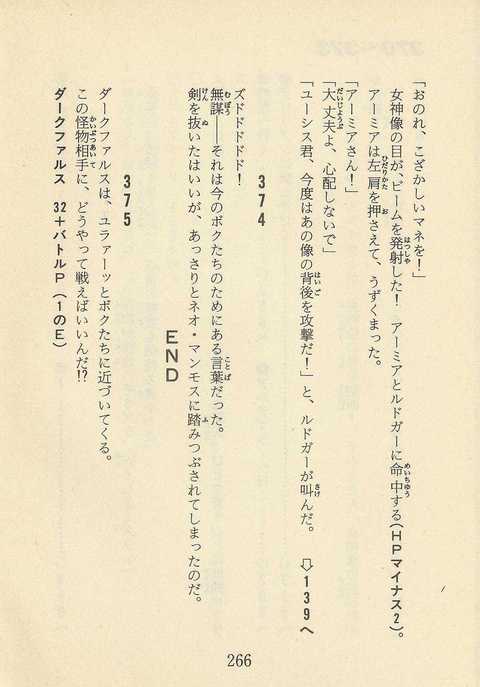 「おのれ、こざかしいマネを！」
女神像の目が、ビームを発射した！　アーミアとルドガーに命中する（ＨＰマイナス２）。
アーミアは左肩を押さえて、うずくまった。
「アーミアさん！」
「大丈夫よ、心配しないで」
「ユーシス君、今度はあの像の背後を攻撃だ！」と、ルドガーが叫んだ。　⇨１３９へ
３７４
ズドドドドド！
無謀――それは今のボクたちのためにある言葉だった。
剣を抜いたはいいが、あっさりとネオ・マンモスに踏みつぶされてしまったのだ。
ＥＮＤ
３７５
ダークファルスは、ユラァーッとボクたちに近づいてくる。
この怪物相手に、どうやって戦えばいいんだ!?
ダークファルス　32＋バトルＰ（１のＥ）
266